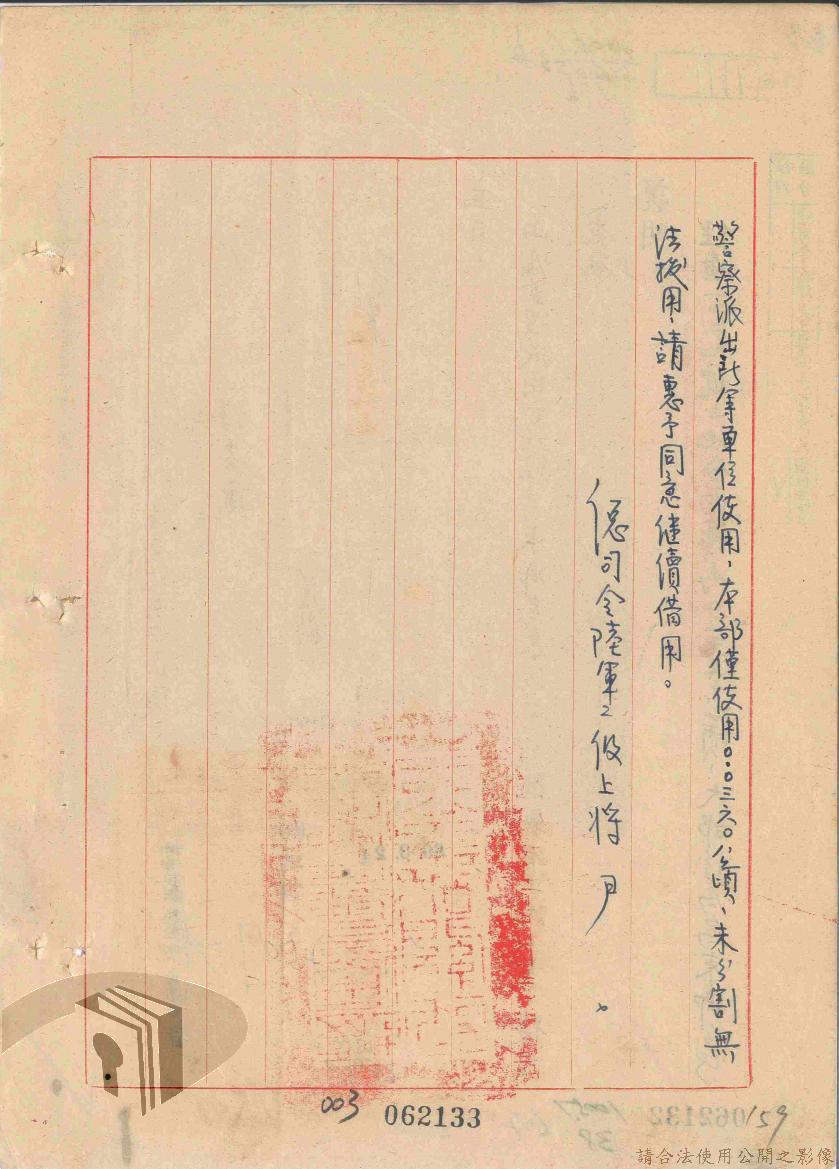 警察派出所等單位使用，本部僅使用0.0三六0公頃，未分割無
法撥用，請惠予同意继續借用。
總司令陸軍二級上將
003
062133
159
請合法使用公開之影像